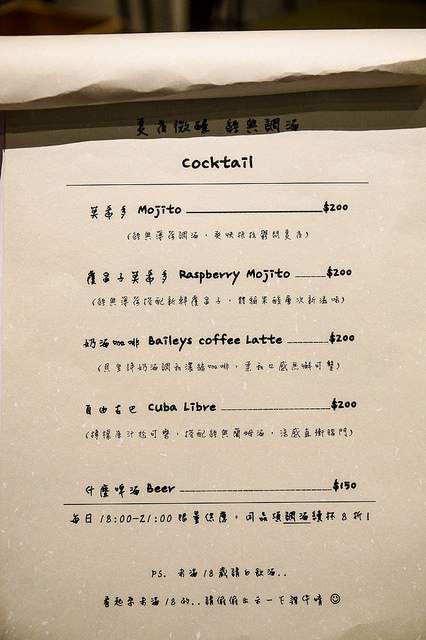 夏夜微醺 經典調酒
Cocktail
莫希多 Mojito $200
(經典薄荷調酒，爽快抵抗難悶夏夜)
覆盆子莫希多 Raspberry Mojito $200
(經典薄荷搭配新鮮覆盆子，體驗果醋層次新滋味)
奶酒咖啡 Baileys coffee Latte $200
(貝里詩奶酒調和濃縮咖啡，柔和口感無懈可擊)
自由古巴 Cuba Libre $200
(檸檬原汁於可樂，搭配經典蘭姆酒，涼感直衝腦門)
什麼啤酒 Beer $150
每日 18:00-21:00 限量供應，同品項調酒續杯 8 折!
PS. 未滿 18 歲請勿飲酒..
看起來未滿 18 的..請偷偷出示一下證件唷